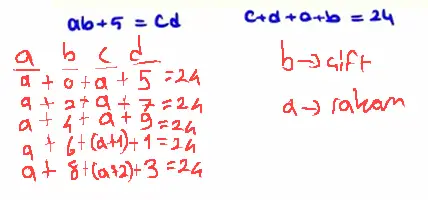 ab+5 = cd
c+d+a+b = 24
a b c d
a + 0 + a + 5 = 24
a + 2 + a + 7 = 24
a + 4 + a + 9 = 24
a + 6 + (a+1) + 1 = 24
a + 8 + (a+2) + 3 = 24
b → çift
a → rakam